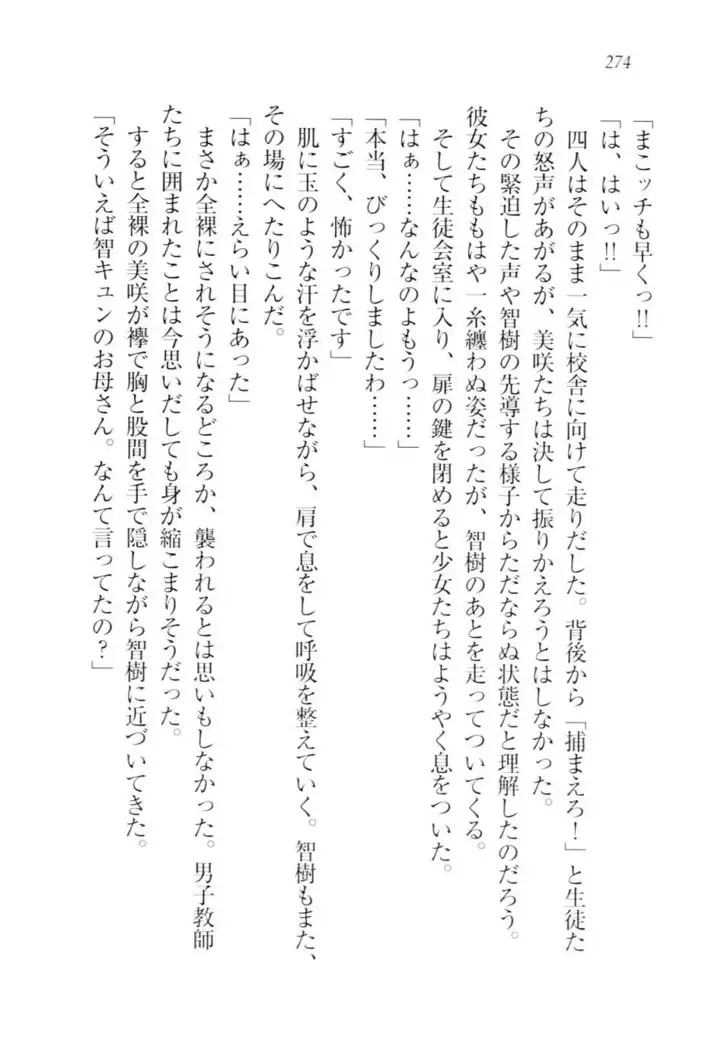 274
「まこッチも早くっ!!」
「は、はいっ!!」
四人はそのまま一気に校舎に向けて走りだした。背後から「捕まえろ!」と生徒た
ちの怒声があがるが、美咲たちは決して振りかえろうとはしなかった。
その緊迫した声や智樹の先導する様子からただならぬ状態だと理解したのだろう。
彼女たちももはや一糸纏わぬ姿だったが、智樹のあとを走ってついてくる。
そして生徒会室に入り、扉の鍵を閉めると少女たちはようやく息をついた。
「はぁ……なんなのよもうっ……」
「本当、びっくりしましたわ……」
「すごく、怖かったです」
肌に玉のような汗を浮かばせながら、肩で息をして呼吸を整えていく。智樹もまた、
その場にへたりこんだ。
「はぁ……えらい目にあった」
まさか全裸にされそうになるどころか、襲われるとは思いもしなかった。男子教師
たちに囲まれたことは今思いだしても身が縮こまりそうだった。
すると全裸の美咲が襷で胸と股間を手で隠しながら智樹に近づいてきた。
「そういえば智キュンのお母さん。なんて言ってたの?」